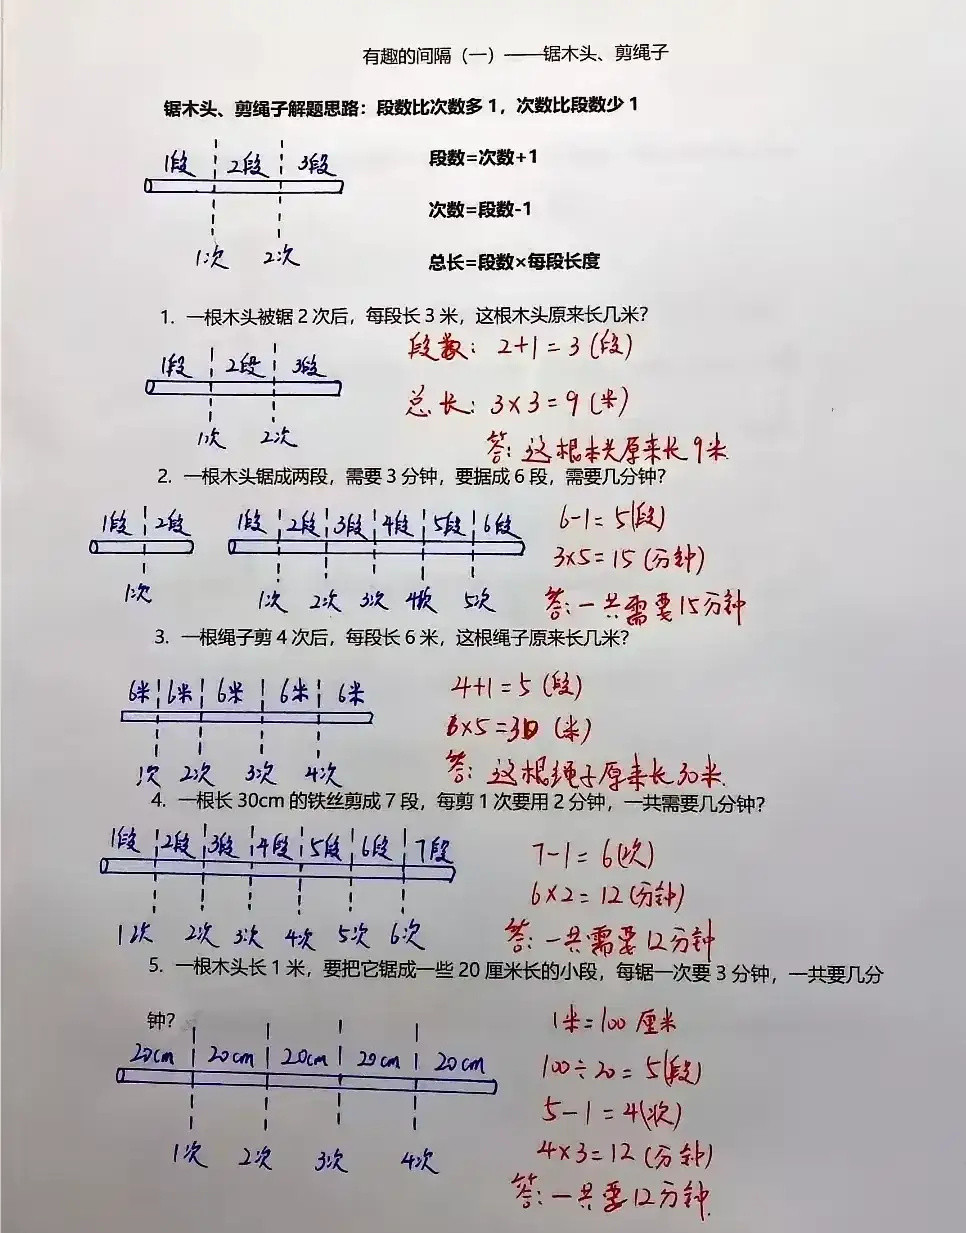 有趣的间隔（一）——锯木头、剪绳子
锯木头、剪绳子解题思路：段数比次数多1，次数比段数少1
1段 2段 3段
段数=次数+1
次数=段数-1
1次 2次
总长=段数×每段长度
1. 一根木头被锯2次后，每段长3米，这根木头原来长几米？
1段 2段 3段
段数：2+1=3(段)
总长：3×3=9(米)
1次 2次
答：这根木头原来长9米.
2. 一根木头锯成两段，需要3分钟，要据成6段，需要几分钟？
1段 2段
1段 2段 3段 4段 5段 6段
6-1=5(段)
3×5=15(分钟)
1次
1次 2次 3次 4次 5次
答：一共需要15分钟
3. 一根绳子剪4次后，每段长6米，这根绳子原来长几米？
6米 6米 6米 6米 6米
4+1=5(段)
6×5=30(米)
1次 2次 3次 4次
答：这根绳子原来长30米.
4. 一根长30cm的铁丝剪成7段，每剪1次要用2分钟，一共需要几分钟？
1段 2段 3段 4段 5段 6段 7段
7-1=6(次)
6×2=12(分钟)
1次 2次 3次 4次 5次 6次
答：一共需要12分钟
5. 一根木头长1米，要把它锯成一些20厘米长的小段，每锯一次要3分钟，一共要几分
钟？
1米=100厘米
20cm 20cm 20cm 20cm 20cm
100÷20=5(段)
5-1=4(次)
1次 2次 3次 4次
4×3=12(分钟)
答：一共要12分钟.